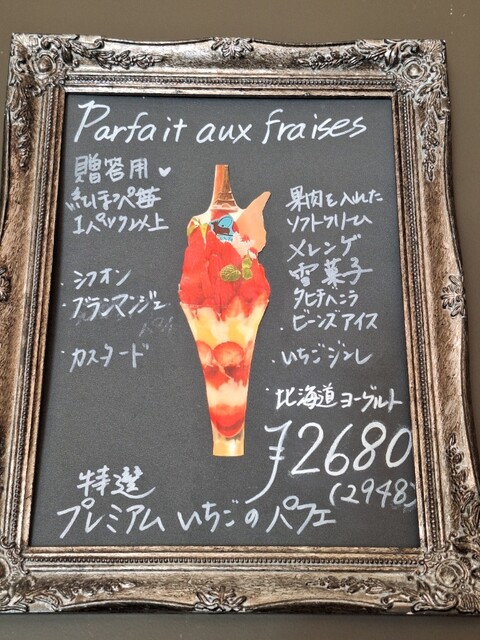 Parfait aux fraises
贈答用♥
紅ほっぺ苺
1パック以上
・シフォン
・ブランマンジェ
・カスタード
果肉を入れた
ソフトクリーム
メレンゲ
雪菓子
タヒチバニラ
ビーンズアイス
・いちごジュレ
・北海道ヨーグルト
¥2680
(2948)
特選
プレミアムいちごのパフェ